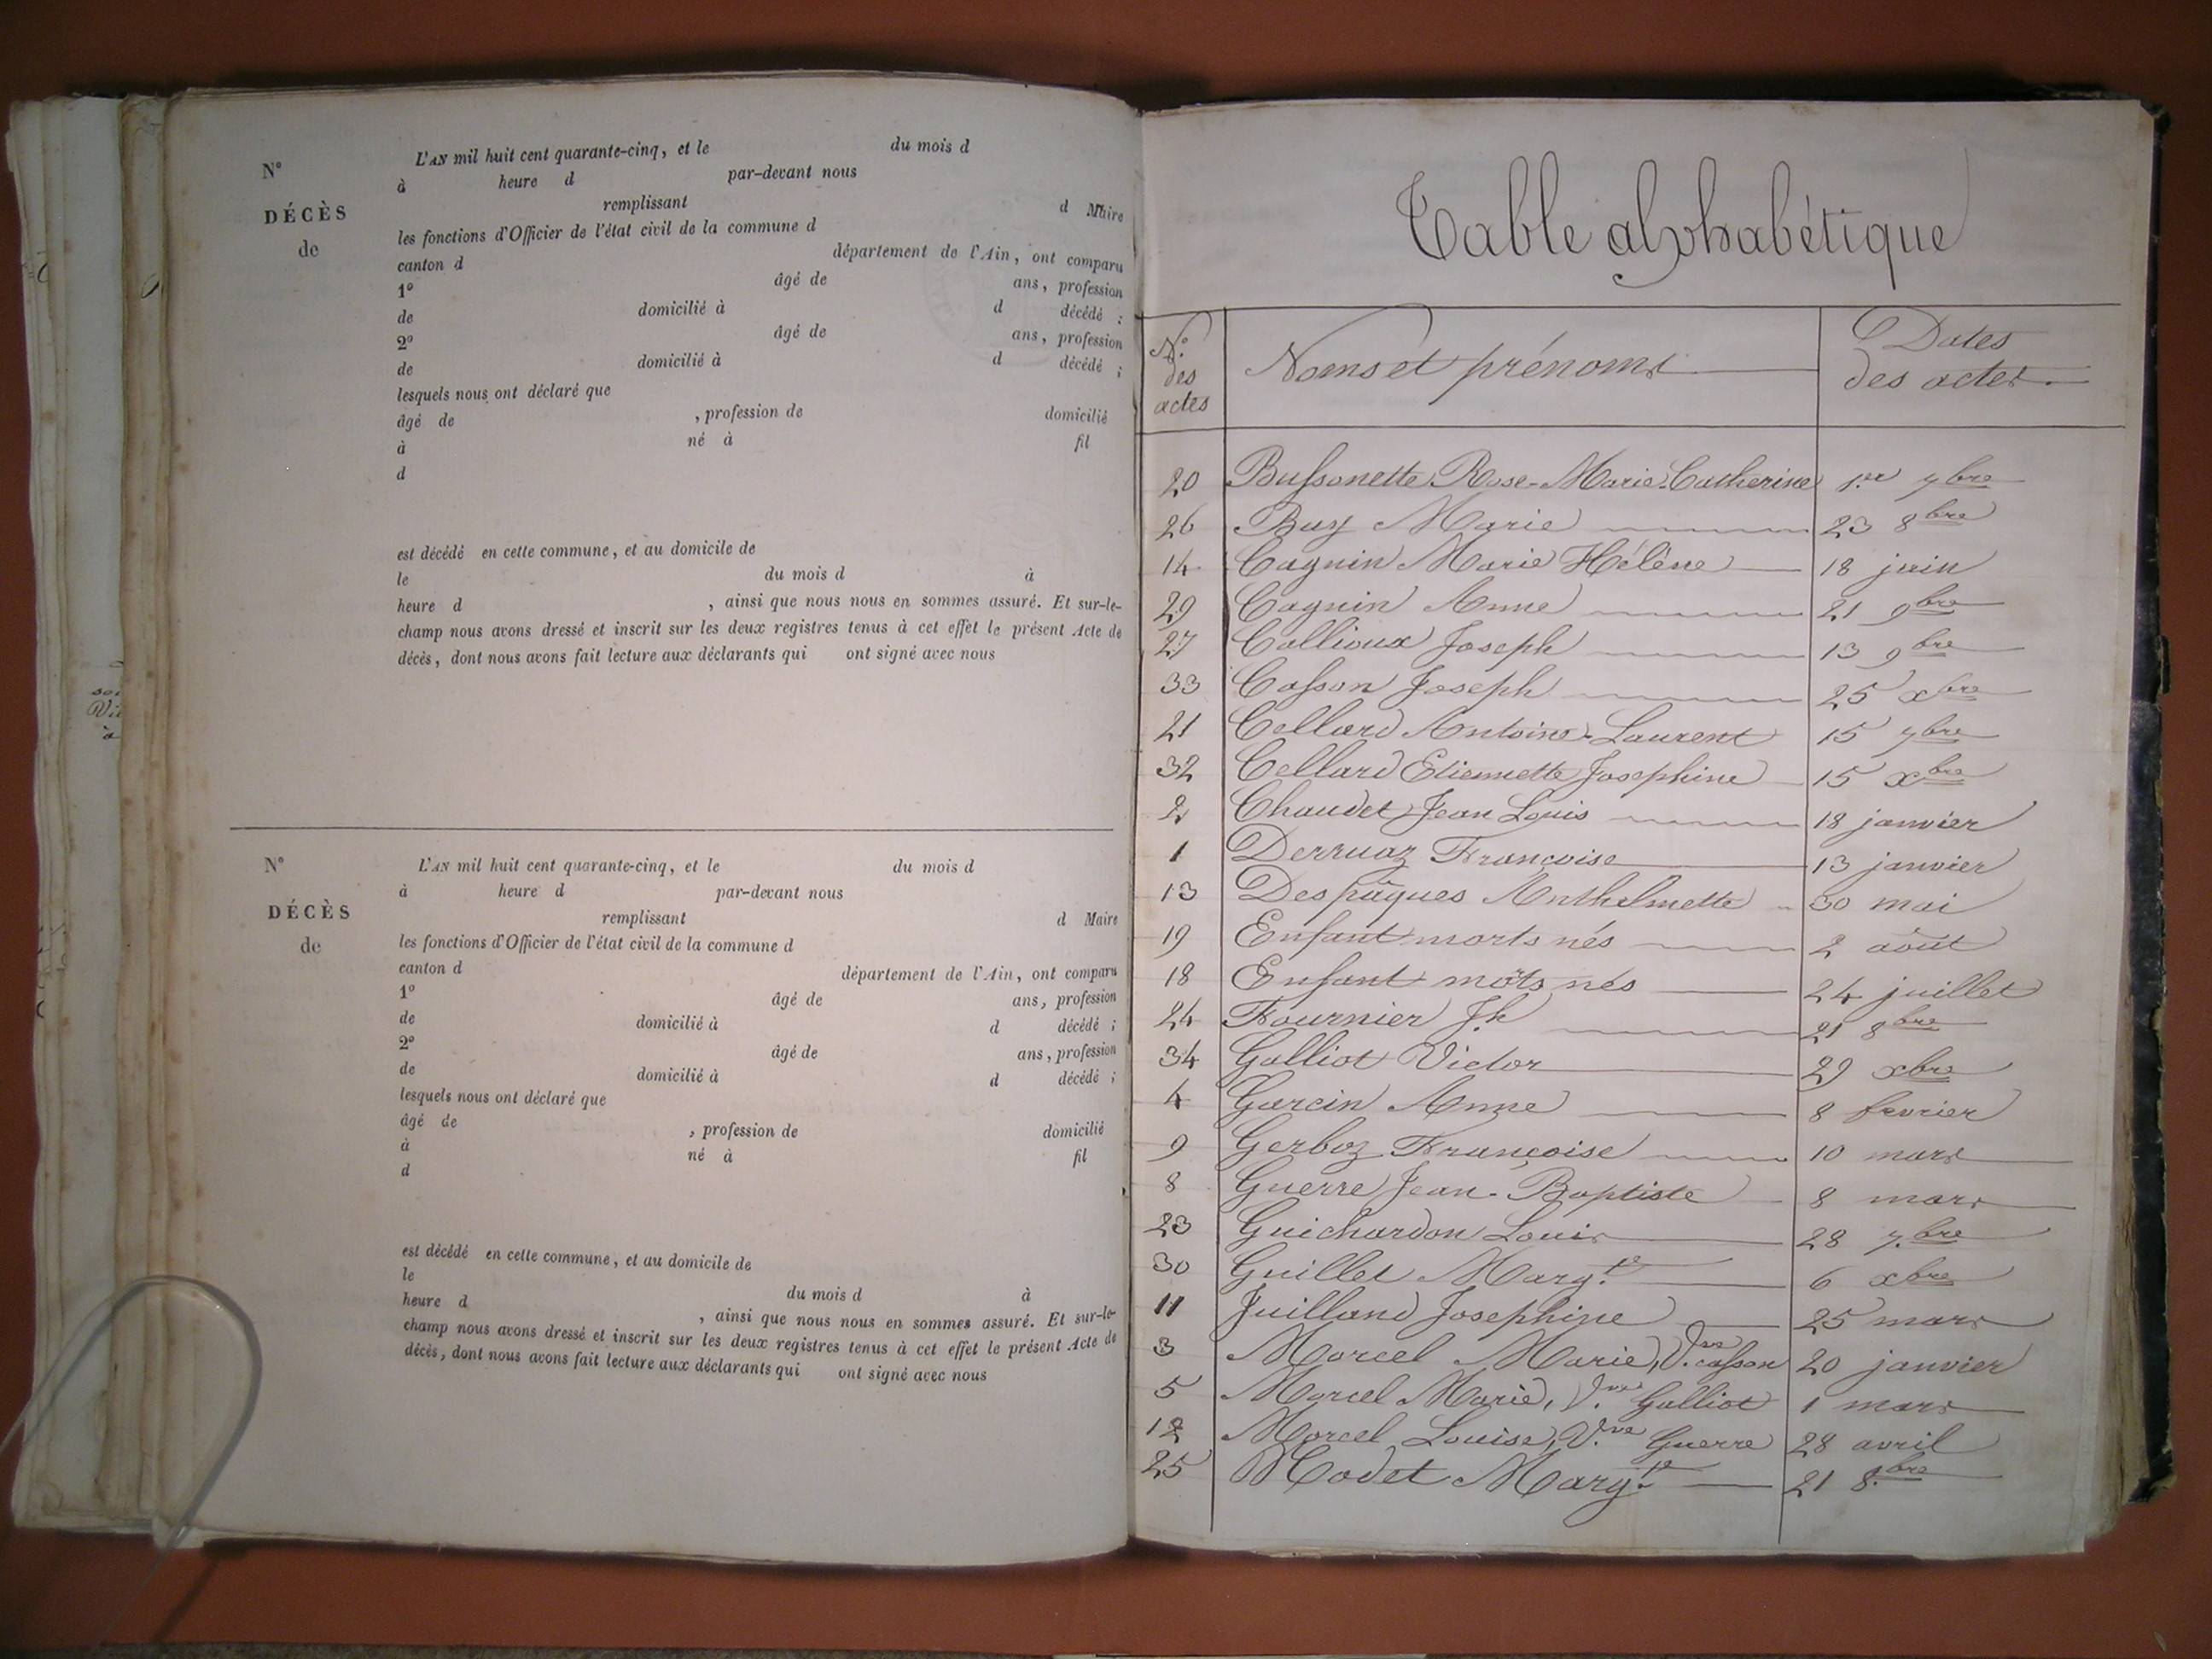 N°
DÉCÈS
de
L'AN mil huit cent quarante-cinq, et le du mois d
à heure d par-devant nous
remplissant d Maire
les fonctions d'Officier de l'état civil de la commune d
canton d département de l'Ain, ont comparu
1° âgé de ans, profession
de domicilié à d décédé ;
2° âgé de ans, profession
de domicilié à d décédé ;
lesquels nous ont déclaré que
âgé de , profession de domicilié
à né à fil
d
est décédé en cette commune, et au domicile de
le du mois d à
heure d , ainsi que nous nous en sommes assuré. Et sur-le-
champ nous avons dressé et inscrit sur les deux registres tenus à cet effet le présent Acte de
décès, dont nous avons fait lecture aux déclarants qui ont signé avec nous
N°
DÉCÈS
de
L'AN mil huit cent quarante-cinq, et le du mois d
à heure d par-devant nous
remplissant d Maire
les fonctions d'Officier de l'état civil de la commune d
canton d département de l'Ain, ont comparu
1° âgé de ans, profession
de domicilié à d décédé ;
2° âgé de ans, profession
de domicilié à d décédé ;
lesquels nous ont déclaré que
âgé de , profession de domicilié
à né à fil
d
est décédé en cette commune, et au domicile de
le du mois d à
heure d , ainsi que nous nous en sommes assuré. Et sur-le-
champ nous avons dressé et inscrit sur les deux registres tenus à cet effet le présent Acte de
décès, dont nous avons fait lecture aux déclarants qui ont signé avec nous
Table alphabétique
N.° des actes
Noms et prénoms
Dates des actes
20 Bussonette Rose-Marie-Catherine 1er 7bre
26 Buy Marie 23 8bre
14 Cagnin Marie Hélène 18 juin
29 Cagnin Anne 21 9bre
27 Callioux Joseph 13 9bre
33 Casson Joseph 25 xbre
21 Cellard Antoine-Laurent 15 7bre
32 Cellard Etiennette Josephine 15 xbre
2 Chaudet Jean Louis 18 janvier
1 Derruaz Françoise 13 janvier
13 Despâques Anthelmette 30 mai
19 Enfant morts nés 2 août
18 Enfant morts nés 24 juillet
24 Fournier Jh 21 8bre
34 Galliot Victor 29 xbre
4 Garcin Anne 8 fevrier
9 Gerboz Françoise 10 mars
8 Guerre Jean-Baptiste 8 mars
23 Guichardon Louis 28 7.bre
30 Guillet Marg.te 6 xbre
11 Juilland Josephine 25 mars
3 Marcel Marie, V.ve casson 20 janvier
5 Marcel Marie, V.ve Galliot 1 mars
12 Marcel Louise, V.ve Guerre 28 avril
25 Modet Marg.te 21 8.bre